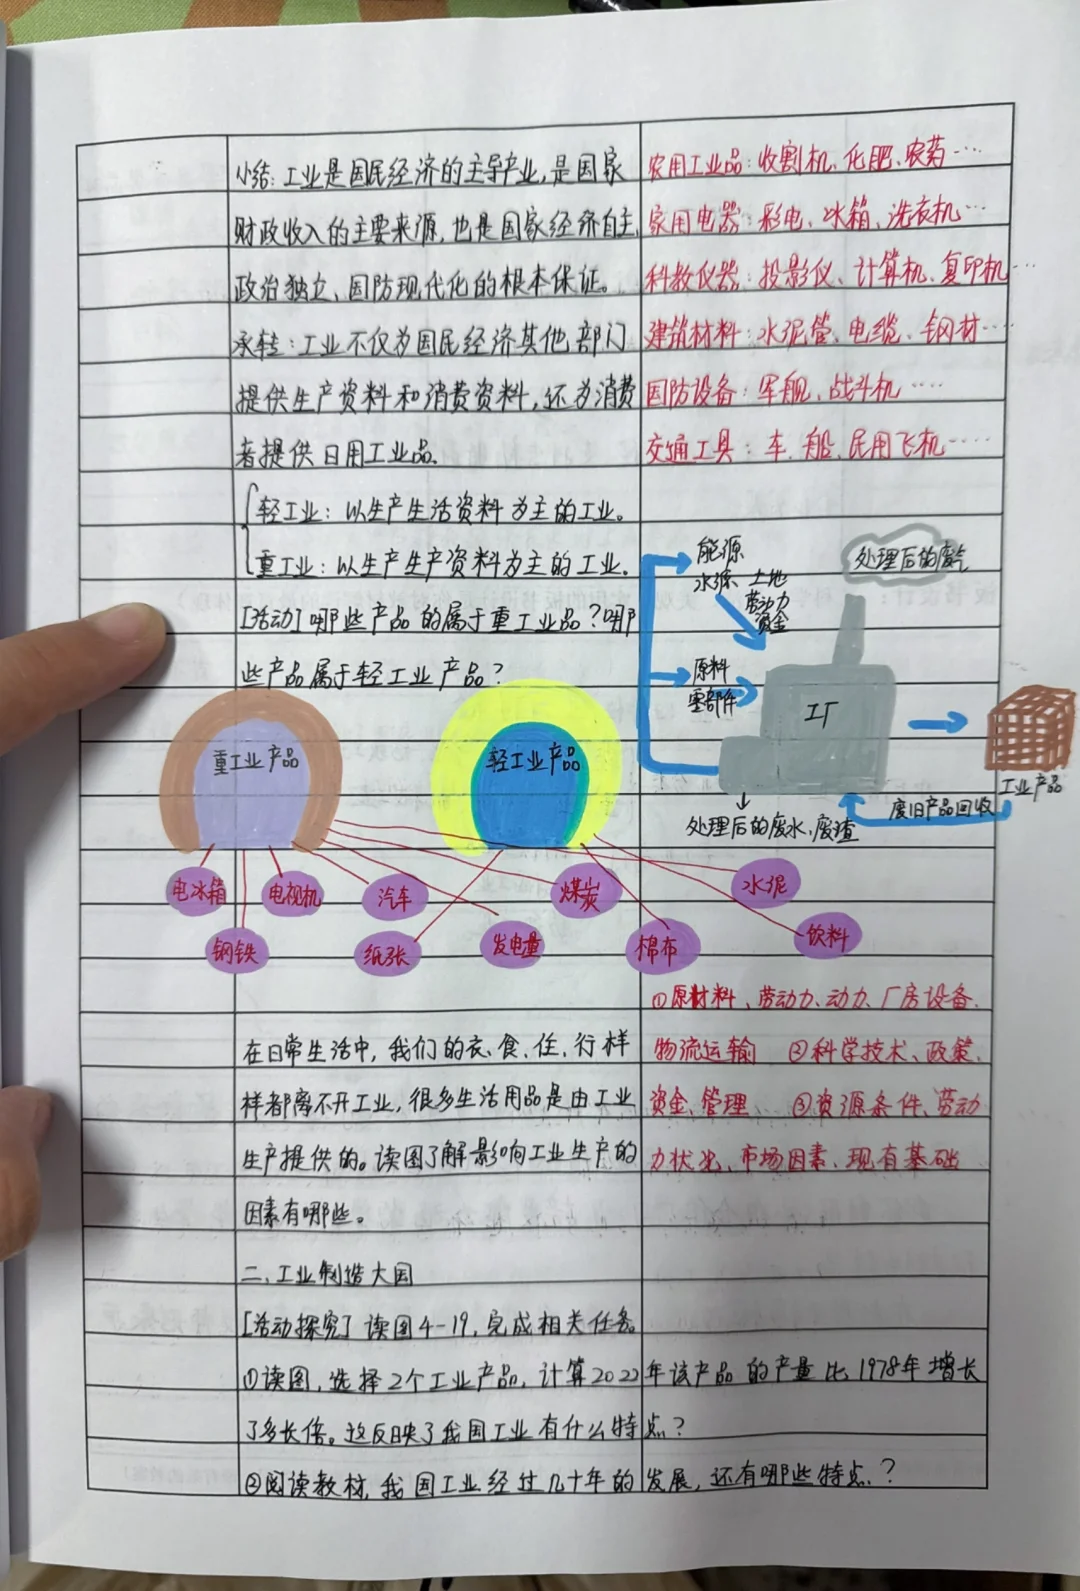 小结：工业是国民经济的主导产业，是国家
财政收入的主要来源，也是国家经济自主、
政治独立、国防现代化的根本保证。
承转：工业不仅为国民经济其他部门
提供生产资料和消费资料，还为消费
者提供日用工业品。
轻工业：以生产生活资料为主的工业。
重工业：以生产生产资料为主的工业。
[活动]哪些产品的属于重工业品？哪
些产品属于轻工业产品？
农用工业品：收割机、化肥、农药……
家用电器：彩电、冰箱、洗衣机……
科教仪器：投影仪、计算机、复印机……
建筑材料：水泥管、电缆、钢材……
国防设备：军舰、战斗机……
交通工具：车、船、民用飞机……
能源
水源 土地
劳动力
资金
处理后的废气
原料
零部件
工厂
工业产品
废旧产品回收
处理后的废水、废渣
重工业产品
轻工业产品
电冰箱
电视机
汽车
煤炭
水泥
钢铁
纸张
发电量
棉布
饮料
在日常生活中，我们的衣、食、住、行样
样都离不开工业，很多生活用品是由工业
生产提供的。读图了解影响工业生产的
因素有哪些。
①原材料、劳动力、动力、厂房设备、
物流运输 ②科学技术、政策、
资金、管理 ③资源条件、劳动
力状况、市场因素、现有基础
二、工业制造大国
[活动探究]读图4-19，完成相关任务。
①读图，选择2个工业产品，计算2022年该产品的产量比1978年增长
了多长倍。这反映了我国工业有什么特点？
②阅读教材，我国工业经过几十年的发展，还有哪些特点？